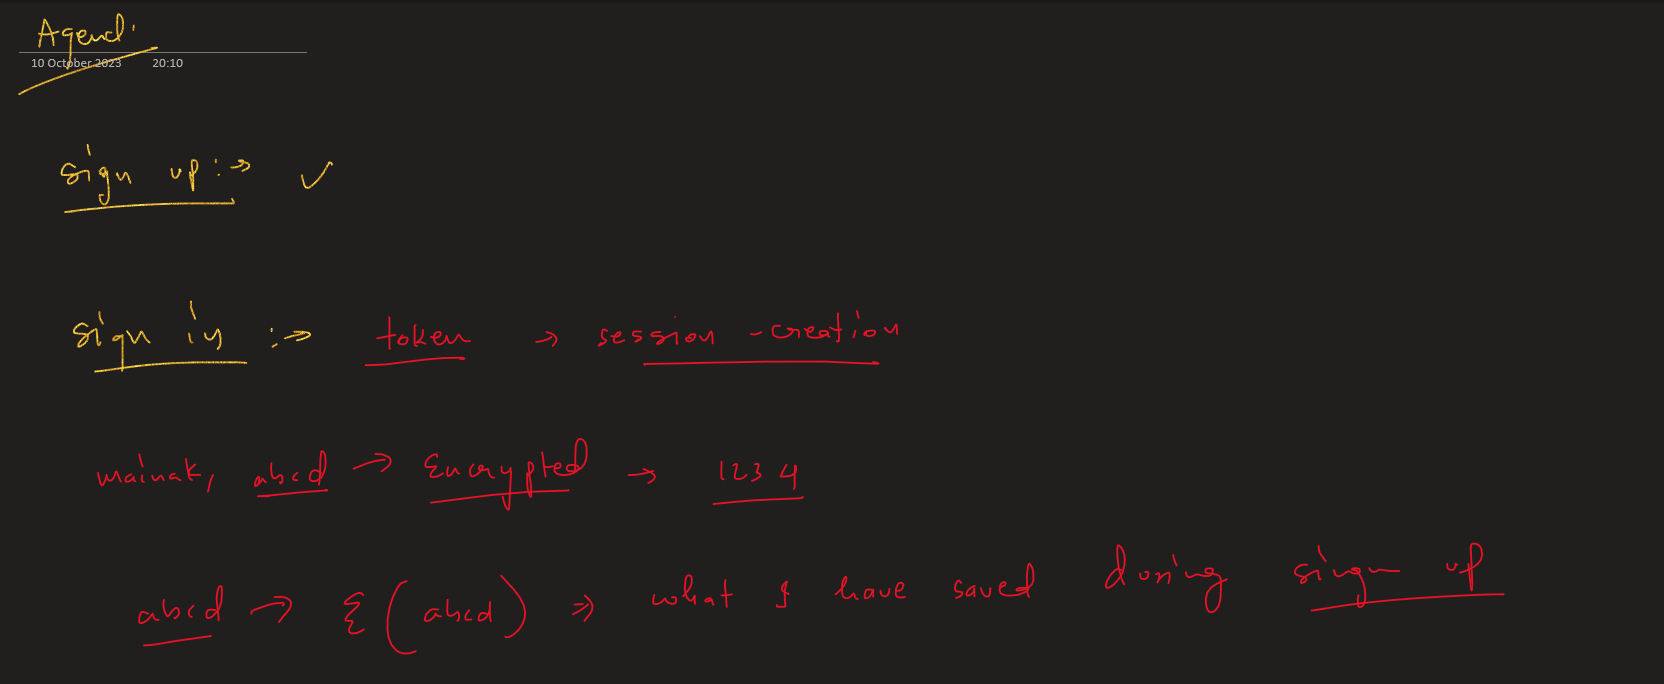 Agend.
10 October 2023 20:10
sign up :→ ✓
sign in :→ token → session - creation
mainak, abcd → Encrypted → 1234
abcd → E(abcd) ⇒ what I have saved during singn up